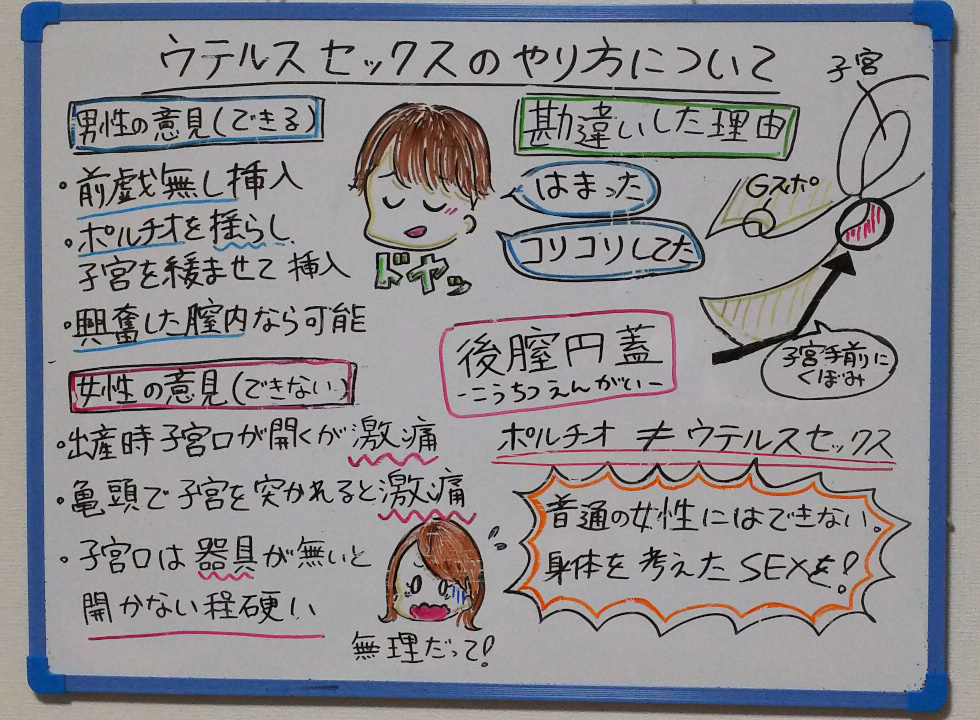 ウテルスセックスのやり方について
男性の意見(できる)
・前戯無し挿入
・ポルチオを揺らし
子宮を緩ませて挿入
・興奮した膣内なら可能
女性の意見(できない)
・出産時子宮口が開くが激痛
・亀頭で子宮を突かれると激痛
・子宮口は器具が無いと
開かない程硬い
ドヤッ
無理だって!
勘違いした理由
はまった
コリコリしてた
子宮
Gスポ
子宮手前に
くぼみ
後膣円蓋
-こうちつえんがい-
ポルチオ ≠ ウテルスセックス
普通の女性にはできない。
身体を考えたSEXを!